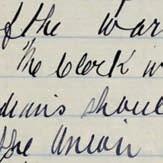 of the war
The clerk w
dians shoul
the Union